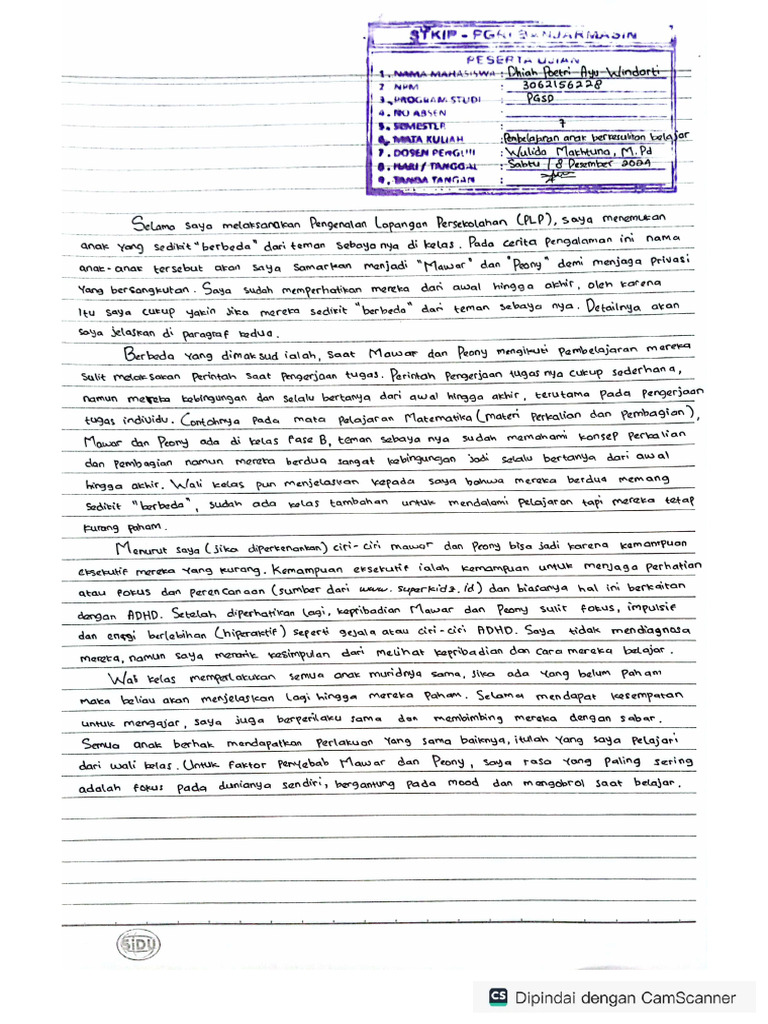 STKIP - PGRI BANJARMASIN
PESERTA UJIAN
1. NAMA MAHASISWA : Dhiah Poetri Ayu Windarti
2 NPM : 3062156228
3. PROGRAM STUDI : PGSD
4. NO ABSEN
5. SEMESTER : 7
6. MATA KULIAH : Pembelajaran anak berkesulitan belajar
7. DOSEN PENGUJI : Wulida Makhtuna, M.Pd
8. HARI / TANGGAL : Sabtu / 8 Desember 2024
9. TANDA TANGAN :
Selama saya melaksanakan Pengenalan Lapangan Persekolahan (PLP), saya menemukan
anak yang sedikit "berbeda" dari teman sebaya nya di kelas. Pada cerita pengalaman ini nama
anak-anak tersebut akan saya samarkan menjadi "Mawar" dan "Peony" demi menjaga privasi
yang bersangkutan. Saya sudah memperhatikan mereka dari awal hingga akhir, oleh karena
itu saya cukup yakin jika mereka sedikit "berbeda" dari teman sebaya nya. Detailnya akan
saya jelaskan di paragraf kedua.
Berbeda yang dimaksud ialah, saat Mawar dan Peony mengikuti pembelajaran mereka
sulit melaksakan perintah saat pengerjaan tugas. Perintah pengerjaan tugas nya cukup sederhana,
namun mereka kebingungan dan selalu bertanya dari awal hingga akhir, terutama pada pengerjaan
tugas individu. Contohnya pada mata pelajaran Matematika (materi Perkalian dan Pembagian),
Mawar dan Peony ada di kelas Fase B, teman sebaya nya sudah memahami konsep perkalian
dan pembagian namun mereka berdua sangat kebingungan jadi selalu bertanya dari awal
hingga akhir. Wali kelas pun menjelaskan kepada saya bahwa mereka berdua memang
sedikit "berbeda", sudah ada kelas tambahan untuk mendalami pelajaran tapi mereka tetap
kurang paham.
Menurut saya (jika diperkenankan) ciri-ciri mawar dan Peony bisa jadi karena kemampuan
eksekutif mereka yang kurang. Kemampuan eksekutif ialah kemampuan untuk menjaga perhatian
atau fokus dan perencanaan (sumber dari www.superkidz.id) dan biasanya hal ini berkaitan
dengan ADHD. Setelah diperhatikan lagi, kepribadian Mawar dan Peony sulit fokus, impulsif
dan energi berlebihan (hiperaktif) seperti gejala atau ciri-ciri ADHD. Saya tidak mendiagnosa
mereka, namun saya menarik kesimpulan dari melihat kepribadian dan cara mereka belajar.
Wali kelas memperlakukan semua anak muridnya sama, jika ada yang belum paham
maka beliau akan menjelaskan lagi hingga mereka paham. Selama mendapat kesempatan
untuk mengajar, saya juga berperilaku sama dan membimbing mereka dengan sabar.
Semua anak berhak mendapatkan perlakuan yang sama baiknya, itulah yang saya pelajari
dari wali kelas. Untuk faktor penyebab Mawar dan Peony, saya rasa yang paling sering
adalah fokus pada dunianya sendiri, bergantung pada mood dan mengobrol saat belajar.
SIDU
CS Dipindai dengan CamScanner